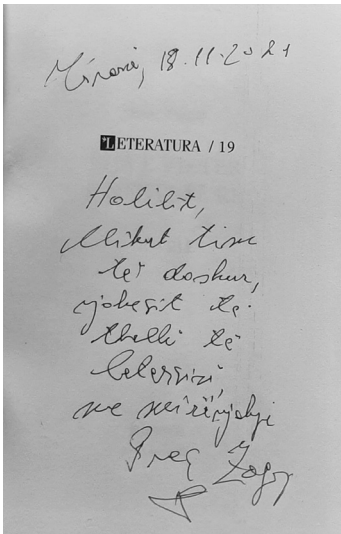 Tiranë, 18.11.2021
LETERATURA / 19
Halilit,
Mikut tim
të dashur,
njohësit të
thellë të
letërsisë,
me mirënjohje
Preç Zogaj